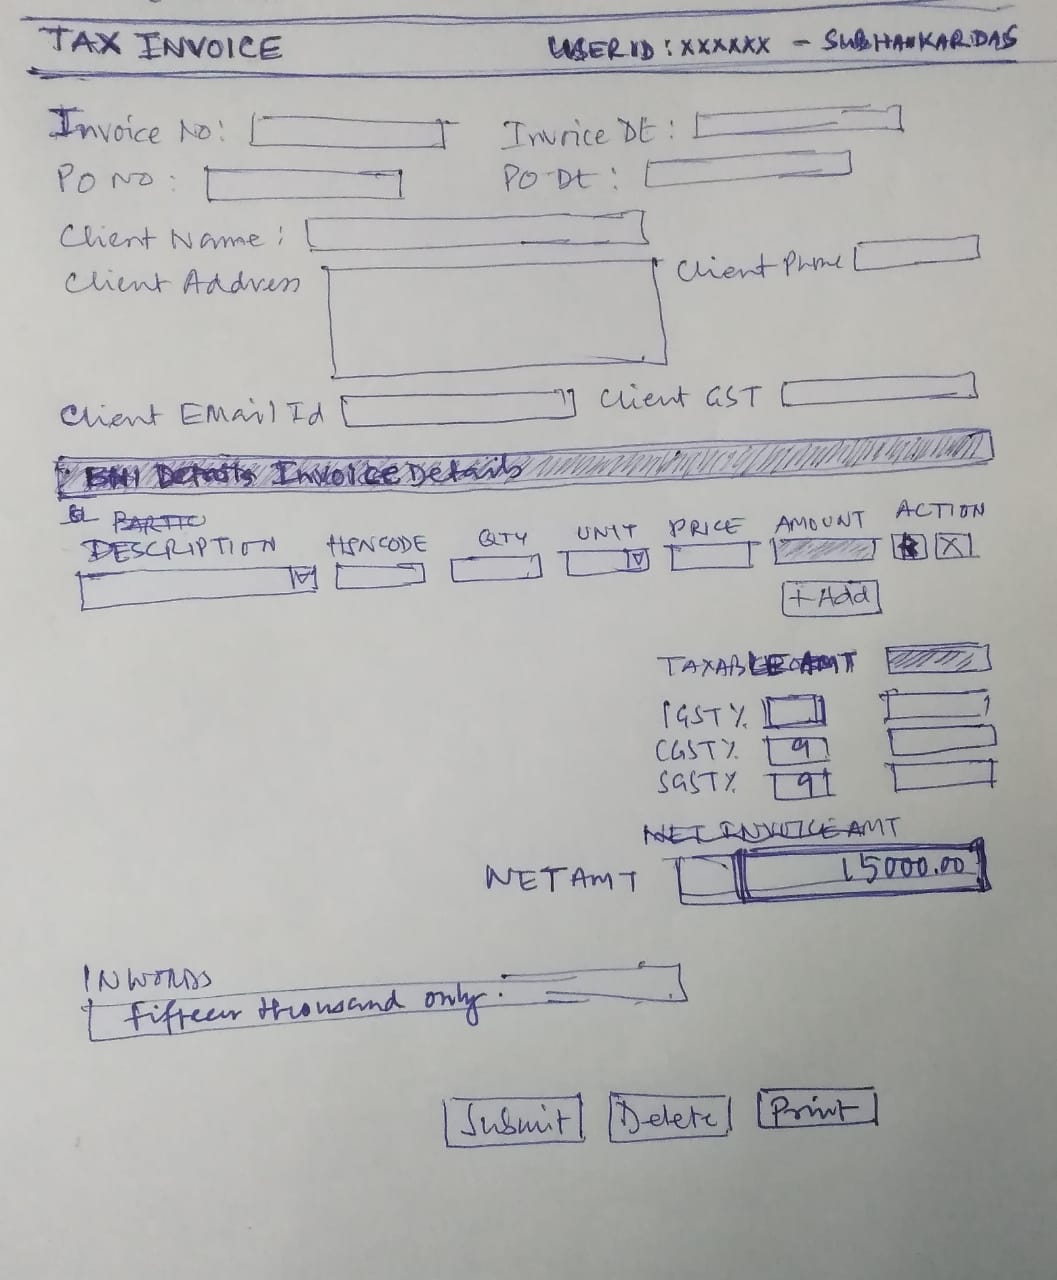 TAX INVOICE USER ID : XXXXXX - SUBHANKAR DAS
Invoice No: Invoice Dt :
PO NO : PO Dt :
Client Name :
Client Address Client Phone
Client EMail Id Client GST
Bill Details Invoice Details
SL PARTIC
DESCRIPTION HSNCODE QTY UNIT PRICE AMOUNT ACTION
X
+ Add
TAXABLE AMT
IGST %
CGST % 9
SGST % 9
NET INVOICE AMT
NET AMT 15000.00
INWORDS
Fifteen thousand only.
Submit Delete Print